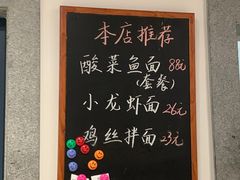 本店推荐
酸菜鱼面 88元
(套餐)
小龙虾面 26元
鸡丝拌面 23元